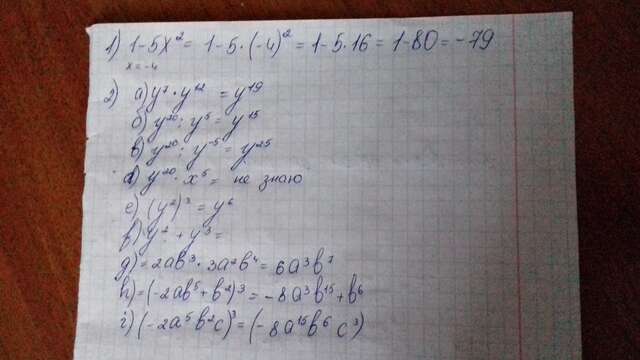 1) 1-5x² = 1-5·(-4)² = 1-5·16 = 1-80 = -79
x=-4
2) а) y⁷·y¹² = y¹⁹
б) y²⁰:y⁵ = y¹⁵
в) y²⁰·y⁵ = y²⁵
д) y²⁰·x⁵ = не знаю
е) (y²)³ = y⁶
y² + y³ =
g) = 2ab³·3a²b⁴ = 6a³b⁷
h) = (-2ab⁵+b²)³ = -8a³b¹⁵+b⁶
i) (-2a⁵b²c)³ = (-8a¹⁵b⁶c³)